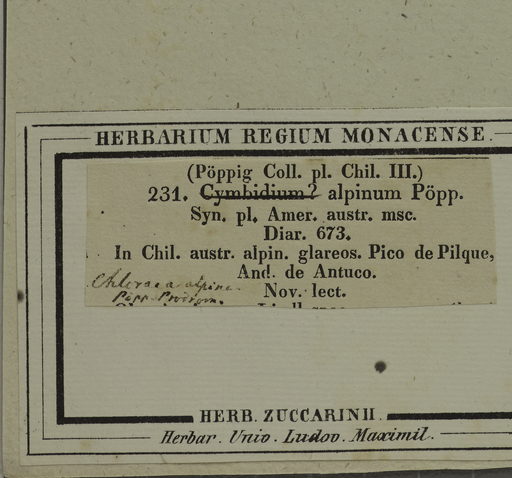 HERBARIUM REGIUM MONACENSE.
(Pöppig Coll. pl. Chil. III.)
231. Cymbidium? alpinum Pöpp.
Syn. pl. Amer. austr. msc.
Diar. 673.
In Chil. austr. alpin. glareos. Pico de Pilque,
And. de Antuco.
Nov. lect.
Chloraea alpina.
Pöpp. Prodrom.
HERB. ZUCCARINII.
Herbar. Univ. Ludov. Maximil.